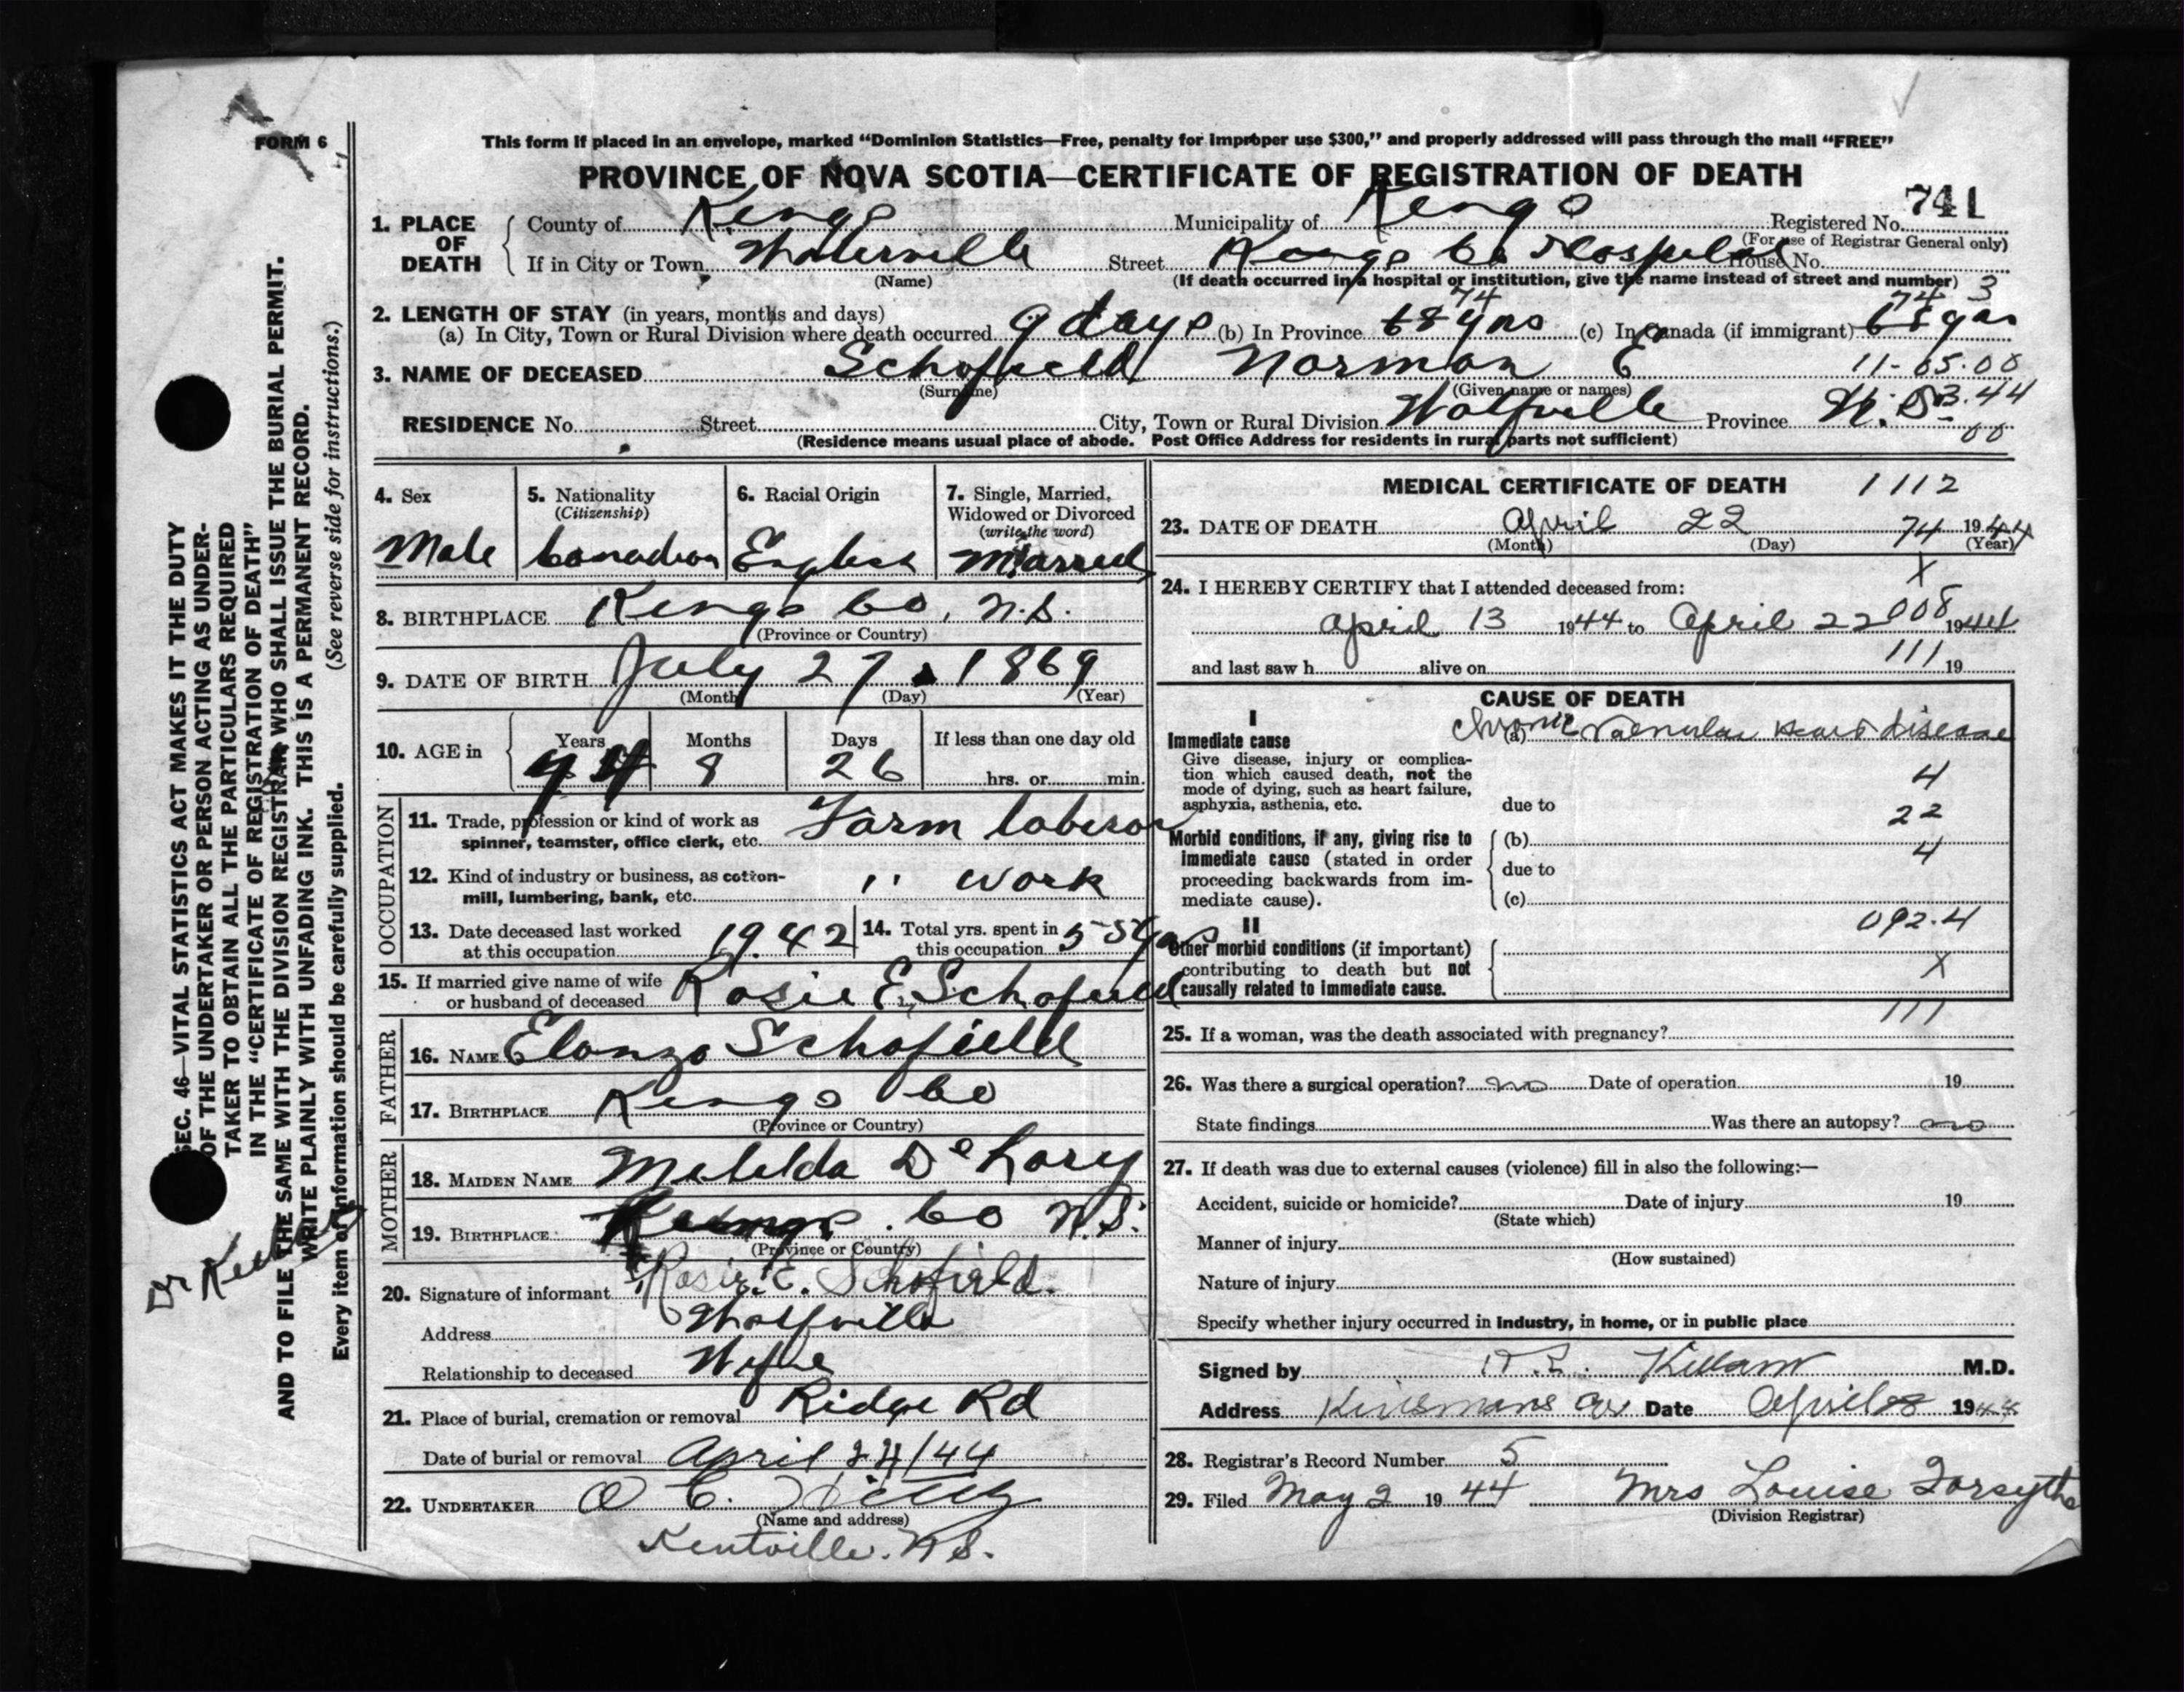 FORM 6
This form if placed in an envelope, marked “Dominion Statistics—Free, penalty for improper use $300,” and properly addressed will pass through the mail “FREE”
PROVINCE OF NOVA SCOTIA—CERTIFICATE OF REGISTRATION OF DEATH
741
1. PLACE OF DEATH
County of Kings Municipality of Kings Registered No.
(For use of Registrar General only)
If in City or Town Waterville Street Kings Co Hospital House No.
(Name) (If death occurred in a hospital or institution, give the name instead of street and number) 3
2. LENGTH OF STAY (in years, months and days) 74 74
(a) In City, Town or Rural Division where death occurred 9 days (b) In Province 68 yrs (c) In Canada (if immigrant) 68 yrs
3. NAME OF DECEASED Schofield Norman E 11-65.00
(Surname) (Given name or names)
RESIDENCE No. Street City, Town or Rural Division Wolfville Province N.S. 3.44
(Residence means usual place of abode. Post Office Address for residents in rural parts not sufficient) 00
4. Sex
Male
5. Nationality
(Citizenship)
Canadian
6. Racial Origin
English
7. Single, Married, Widowed or Divorced
(write the word)
Married
8. BIRTHPLACE Kings Co, N.S.
(Province or Country)
9. DATE OF BIRTH July 27, 1869
(Month) (Day) (Year)
10. AGE in Years Months Days If less than one day old
74 8 26 hrs. or min.
OCCUPATION
11. Trade, profession or kind of work as
spinner, teamster, office clerk, etc. Farm laberor
12. Kind of industry or business, as cotton-
mill, lumbering, bank, etc. " work
13. Date deceased last worked
at this occupation 1942
14. Total yrs. spent in
this occupation 55 yrs
15. If married give name of wife
or husband of deceased Rosie E. Schofield
FATHER
16. NAME Elonzo Schofield
17. BIRTHPLACE Kings Co
(Province or Country)
MOTHER
18. MAIDEN NAME Matilda DeLory
19. BIRTHPLACE Kings Co N.S.
(Province or Country)
20. Signature of informant Rosie E. Schofield.
Address Wolfville
Relationship to deceased Wife
21. Place of burial, cremation or removal Ridge Rd
Date of burial or removal April 24/44
22. UNDERTAKER O C.
(Name and address)
Kentville. N S.
MEDICAL CERTIFICATE OF DEATH 1112
23. DATE OF DEATH April 22 74 1944
(Month) (Day) (Year)
X
24. I HEREBY CERTIFY that I attended deceased from:
008
April 13 1944 to April 22 1944
and last saw h alive on 111 19
CAUSE OF DEATH
I
Immediate cause (a) Chronic Valvular Heart disease
Give disease, injury or complica-
tion which caused death, not the 4
mode of dying, such as heart failure,
asphyxia, asthenia, etc. due to 22
Morbid conditions, if any, giving rise to (b)
immediate cause (stated in order 4
proceeding backwards from im- due to
mediate cause). (c)
II 092.4
Other morbid conditions (if important)
contributing to death but not X
causally related to immediate cause.
111
25. If a woman, was the death associated with pregnancy?
26. Was there a surgical operation? no Date of operation 19
State findings Was there an autopsy? no
27. If death was due to external causes (violence) fill in also the following:—
Accident, suicide or homicide? Date of injury 19
(State which)
Manner of injury
(How sustained)
Nature of injury
Specify whether injury occurred in industry, in home, or in public place
Signed by Killam M.D.
Address Kinsmans Cor Date April 28 1944
28. Registrar's Record Number 5
29. Filed May 2 1944 Mrs Louise Forsythe
(Division Registrar)
SEC. 46—VITAL STATISTICS ACT MAKES IT THE DUTY
OF THE UNDERTAKER OR PERSON ACTING AS UNDER-
TAKER TO OBTAIN ALL THE PARTICULARS REQUIRED
IN THE “CERTIFICATE OF REGISTRATION OF DEATH”
AND TO FILE THE SAME WITH THE DIVISION REGISTRAR, WHO SHALL ISSUE THE BURIAL PERMIT.
WRITE PLAINLY WITH UNFADING INK. THIS IS A PERMANENT RECORD.
Every item of information should be carefully supplied. (See reverse side for instructions.)
Dr